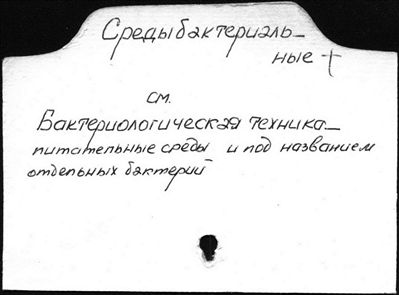 Среды бактериаль_
ные +
см.
Бактериологическая техника_
питательные среды и под названием
отдельных бактерий